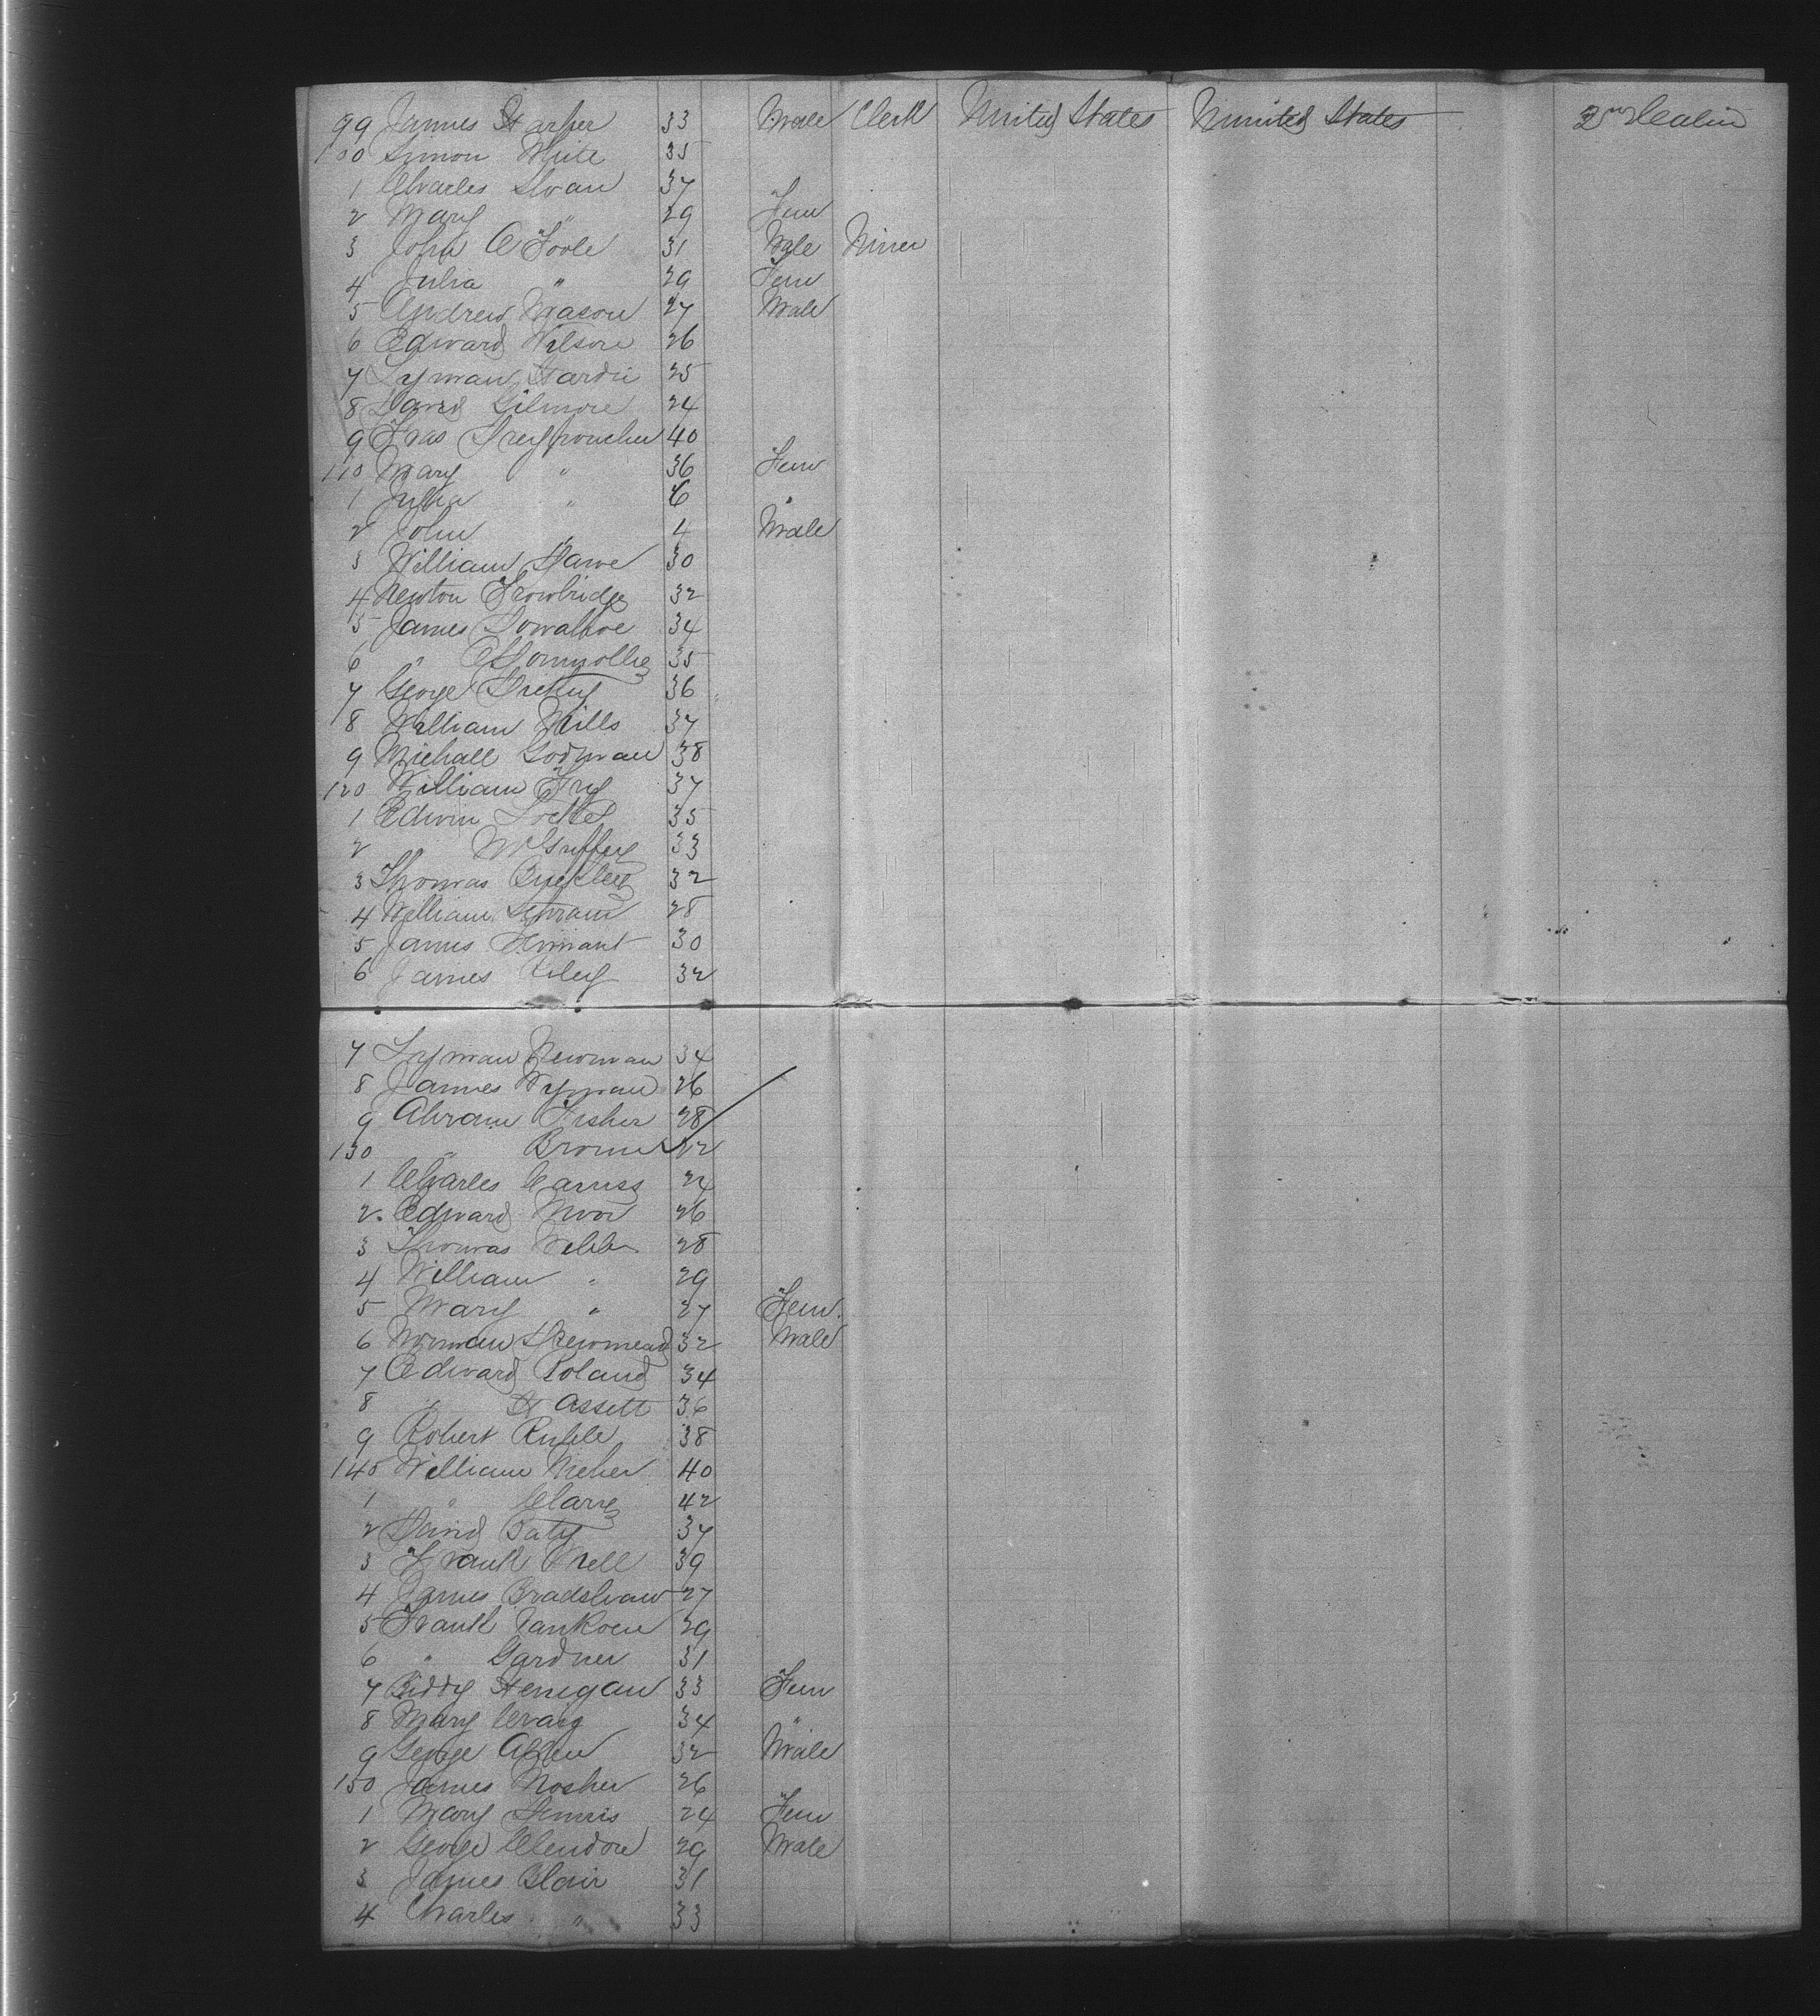 99 James Harper 33 Male Clerk United States United States 2nd Cabin
100 Simon White 35
1 Charles Sloan 37
2 Mary " 29 Fem
3 John O Toole 31 Male Miner
4 Julia " 29 Fem
5 Andrew Mason 27 Male
6 Edward Wilson 26
7 Lyman Hardie 25
8 David Gilmore 24
9 Fras 40
110 Mary " 36 Fem
1 Julia " 6 "
2 John " 4 Male
3 William 30
4 Newton Trowbridge 32
5 James 34
6 " 35
7 George 36
8 William Mills 37
9 Michall Godman 38
120 William Fry 37
1 Edwin 35
2 McGuffey 33
3 Thomas Buckley 32
4 William Schram 28
5 James 30
6 James Riley 32
7 Lyman Newman 34
8 James Wyman 26
9 Abram Fisher 28
130 " Brown
1 Charles 24
2. Edward Moor 26
3 Thomas Webb 28
4 William " 29
5 Mary " 27 Fem.
6 Norman 32 Male
7 Edward Roland 34
8 " Hassett 36
9 Robert 38
140 William 40
1 " 42
2 David Baty 37
3 Frank 39
4 James Bradshaw 27
5 Frank 29
6 " Gardner 31
7 Biddy Henegan 33 Fem
8 Mary Craig 34 "
9 George Allen 32 Male
150 James Mosher 26
1 Mary Dennis 24 Fem
2 George Clendon 29 Male
3 James Blair 31
4 Charles " 33